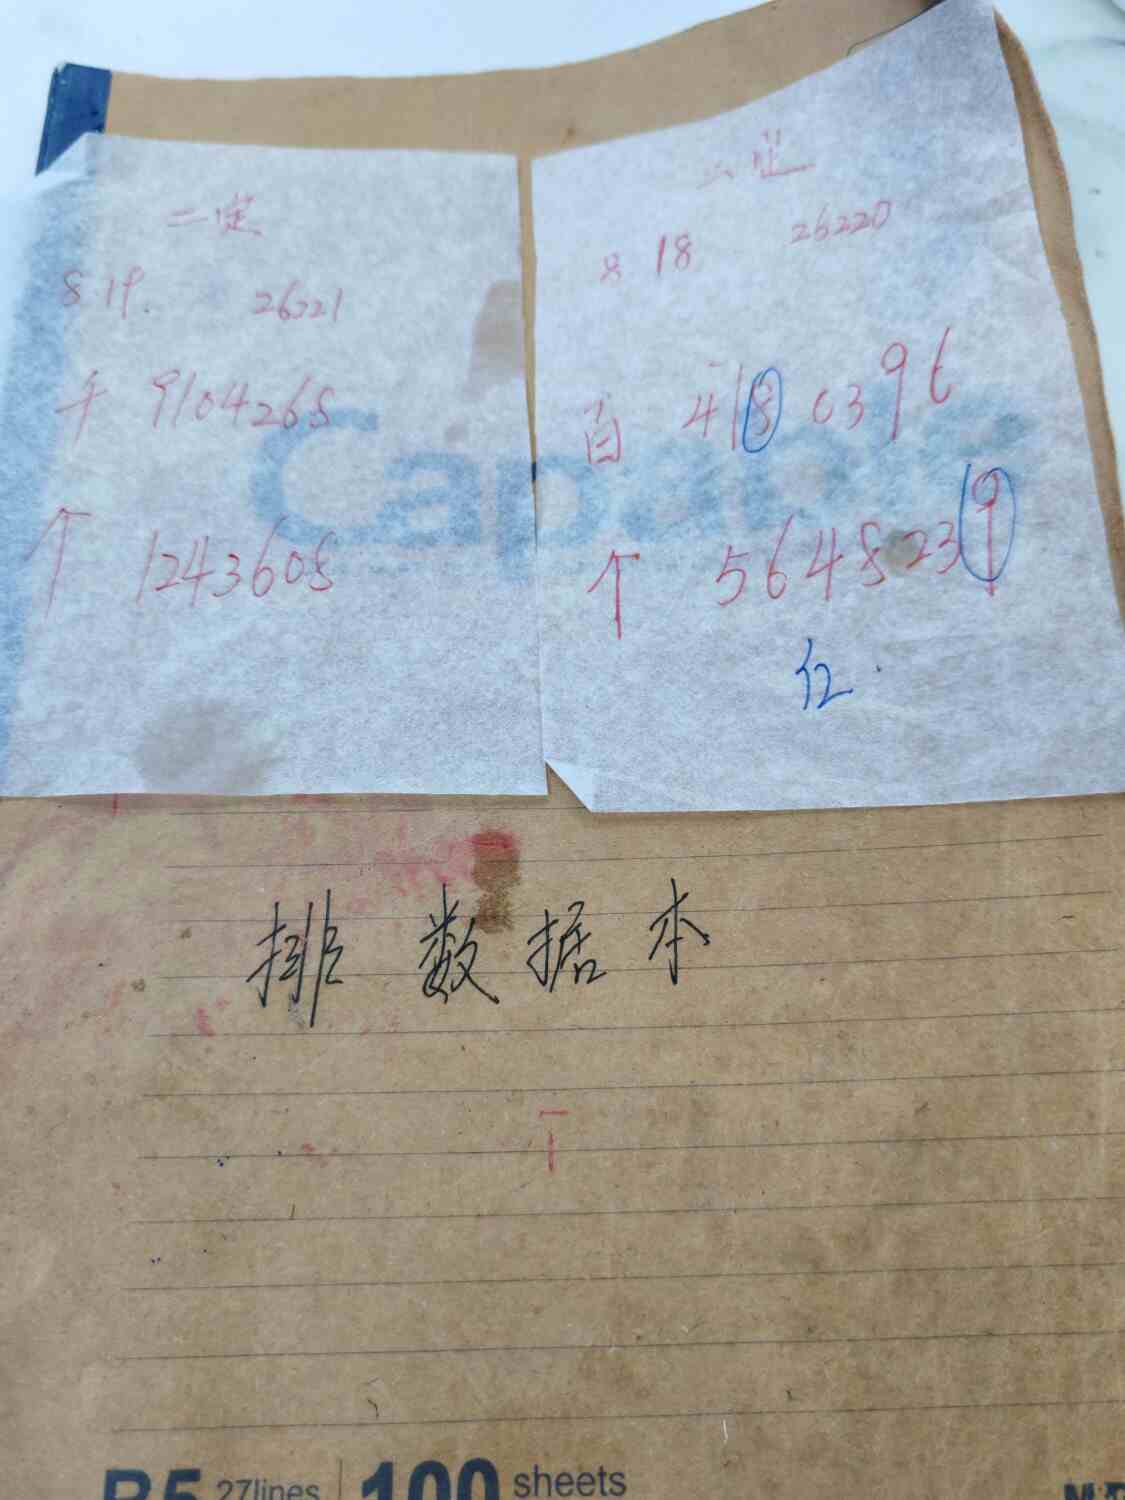 二定
8.19. 26221
千 9104268
个 1243608
二定
8 18 26220
百 4180396
个 5648239
红
排数据本
B5 27lines 100 sheets